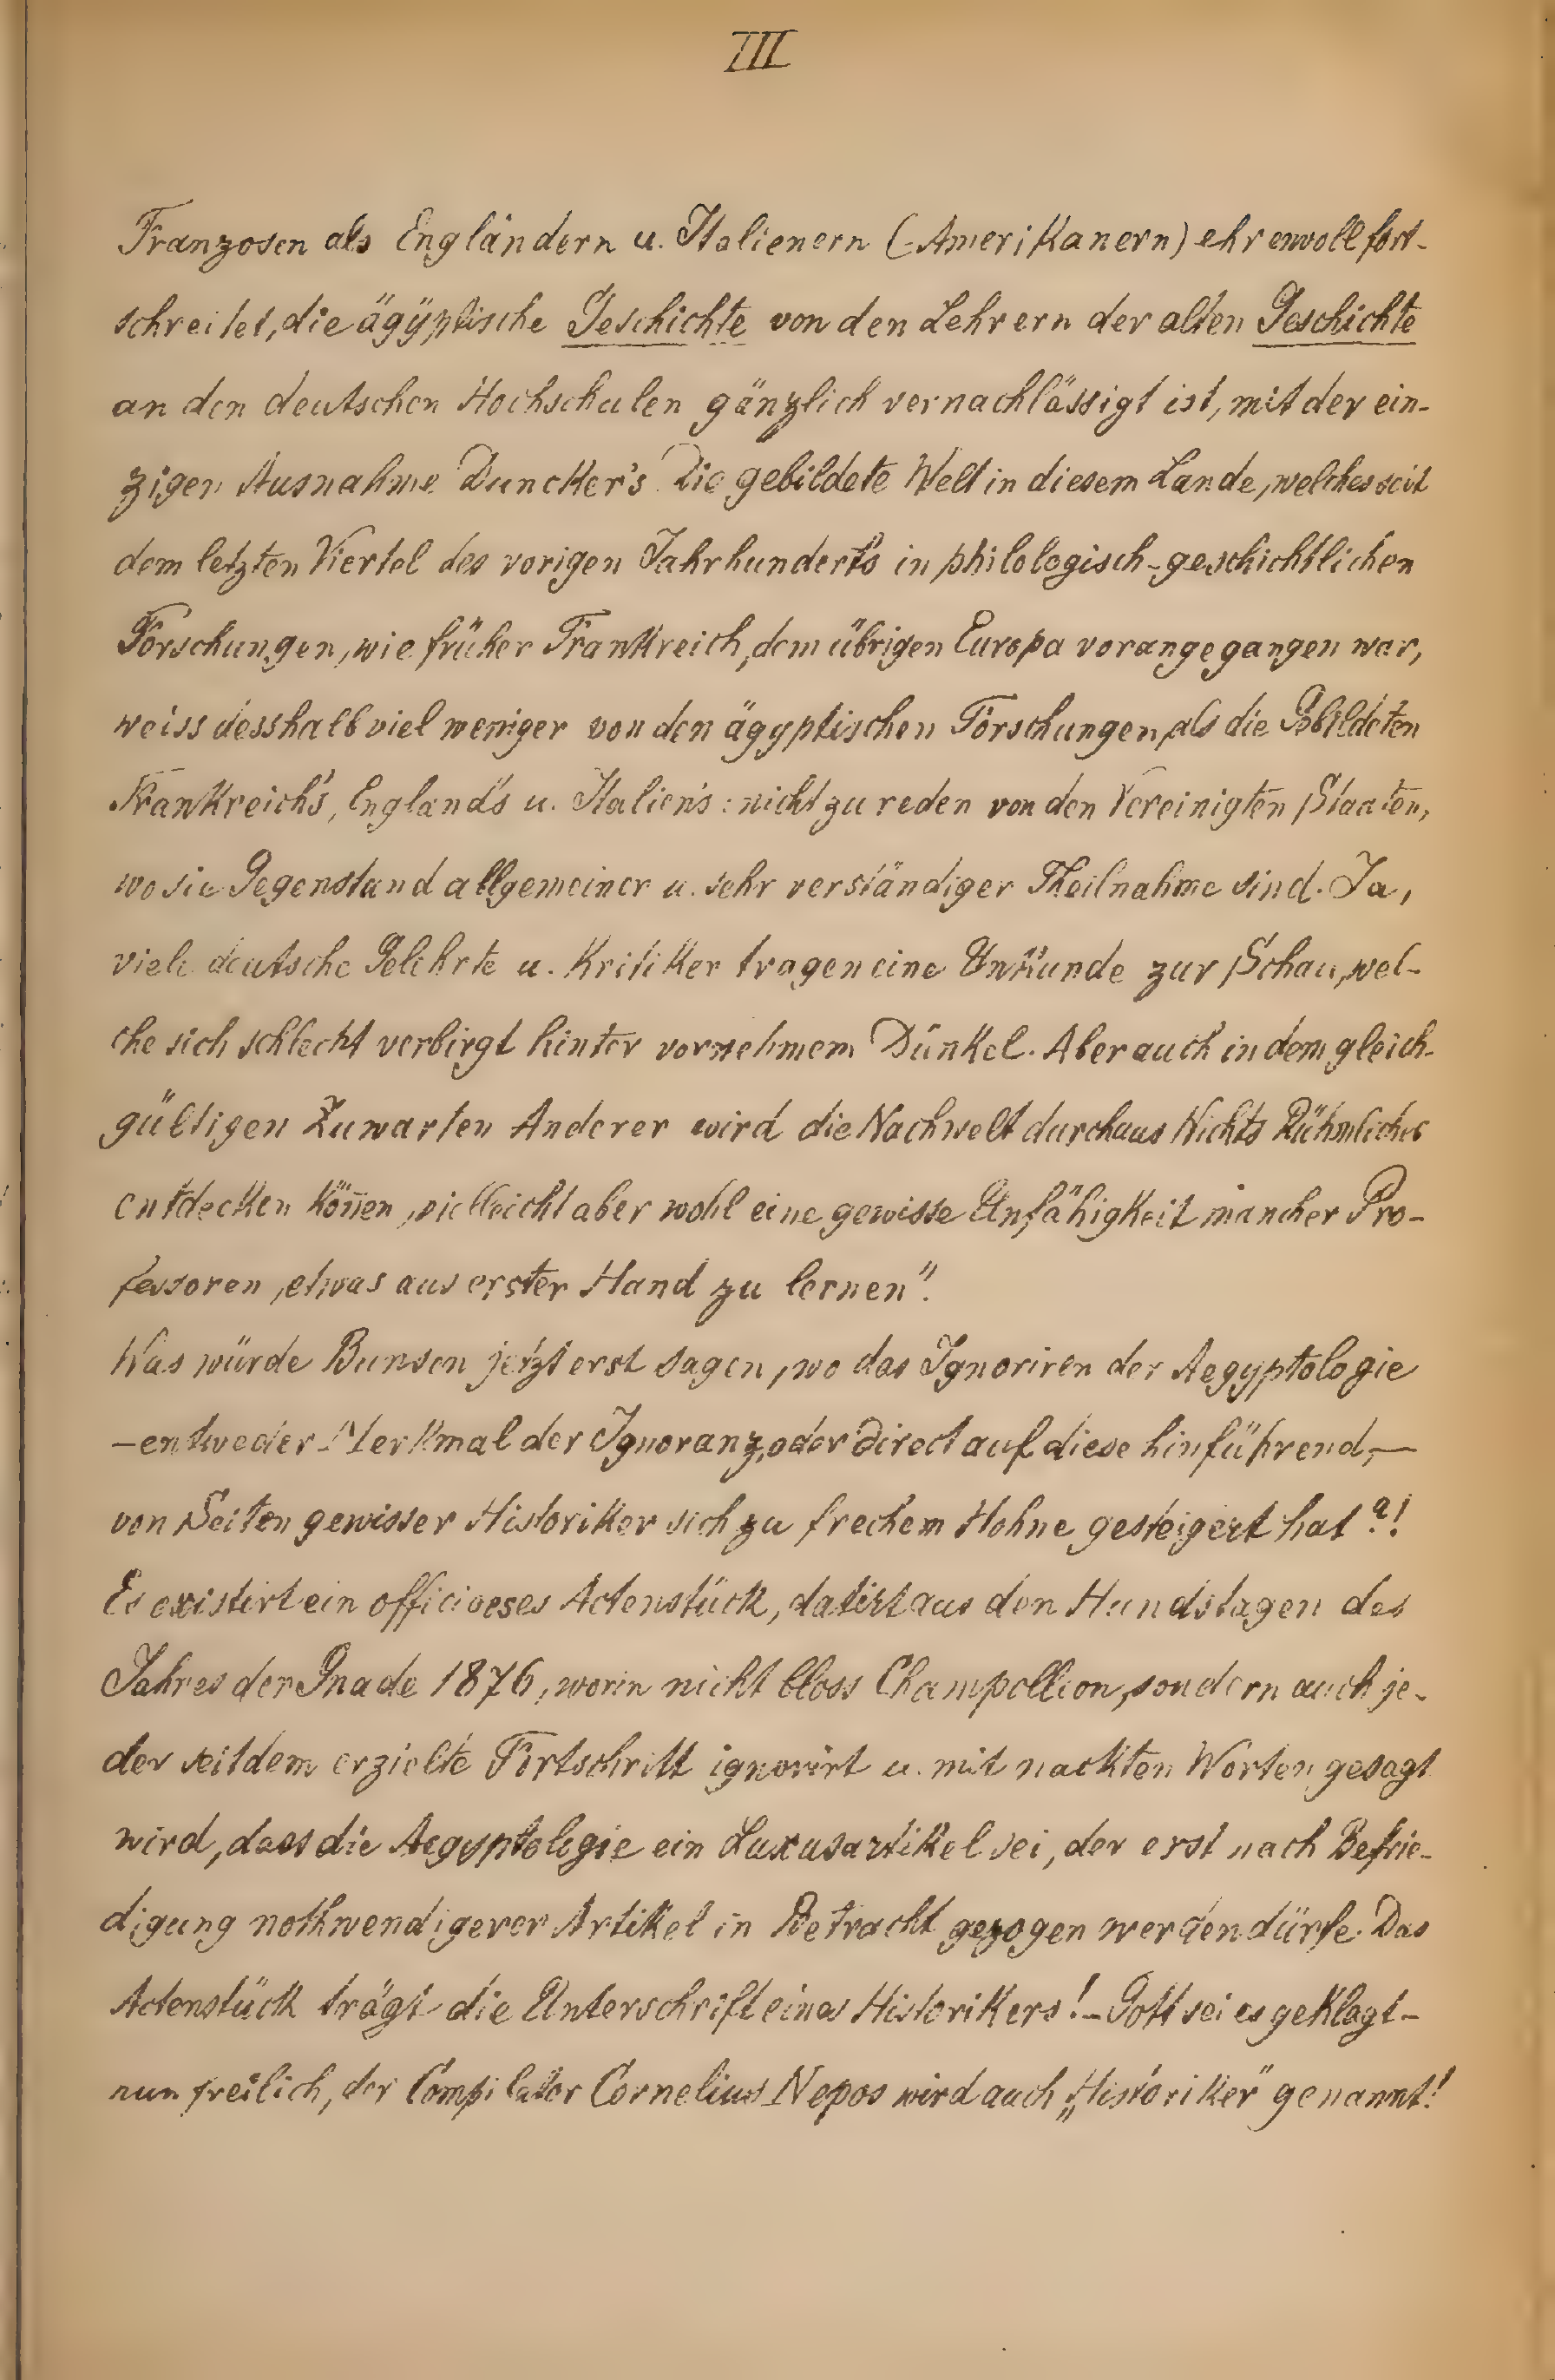 III
Franzosen als Engländern u. Italienern (-Amerikanern) ehrenvoll fort-
schreitet, die ägÿptische Geschichte von den Lehrern der alten Geschichte
an den deutschen Hochschulen gänzlich vernachlässigt ist, mit der ein-
zigen Ausnahme Duncker's. Die gebildete Welt in diesem Lande, welches seit
dem letzten Viertel des vorigen Jahrhundert's in philologisch-geschichtlichen
Forschungen, wie früher Frankreich, dem übrigen Europa vorangegangen war,
weiss desshalb viel weniger von den ägyptischen Forschungen, als die Gebildeten
Frankreich's, England's u. Italien's: nicht zu reden von den Vereinigten Staaten,
wo sie Gegenstand allgemeiner u. sehr verständiger Theilnahme sind. Ja,
viele deutsche Gelehrte u. Kritiker tragen eine Unkunde zur Schau, wel-
che sich schlecht verbirgt hinter vornehmem Dünkel. Aber auch in dem gleich-
gültigen Zuwarten Anderer wird die Nachwelt durchaus Nichts Rühmliches
entdecken können, vielleicht aber wohl eine gewisse Unfähigkeit mancher Pro-
fessoren, etwas aus erster Hand zu lernen".
Was würde Bunsen jetzt erst sagen, wo das Ignoriren der Aegyptologie
– entweder Merkmal der Ignoranz, oder direct auf diese hinführend, –
von Seiten gewisser Historiker sich zu frechem Hohne gesteigert hat?!
Es existirt ein officioeses Actenstück, datirt aus den Hundstagen des
Jahres der Gnade 1876, worin nicht bloss Champollion, sondern auch je-
der seitdem erzielte Fortschritt ignorirt u. mit nackten Worten gesagt
wird, dass die Aegyptologie ein Luxusartikel sei, der erst nach Befrie-
digung nothwendigerer Artikel in Betracht gezogen werden dürfe. Das
Actenstück trägt die Unterschrift eines Historikers! – Gott sei es geklagt –
nun freilich, der Compilator Cornelius Nepos wird auch „Historiker" genannt!